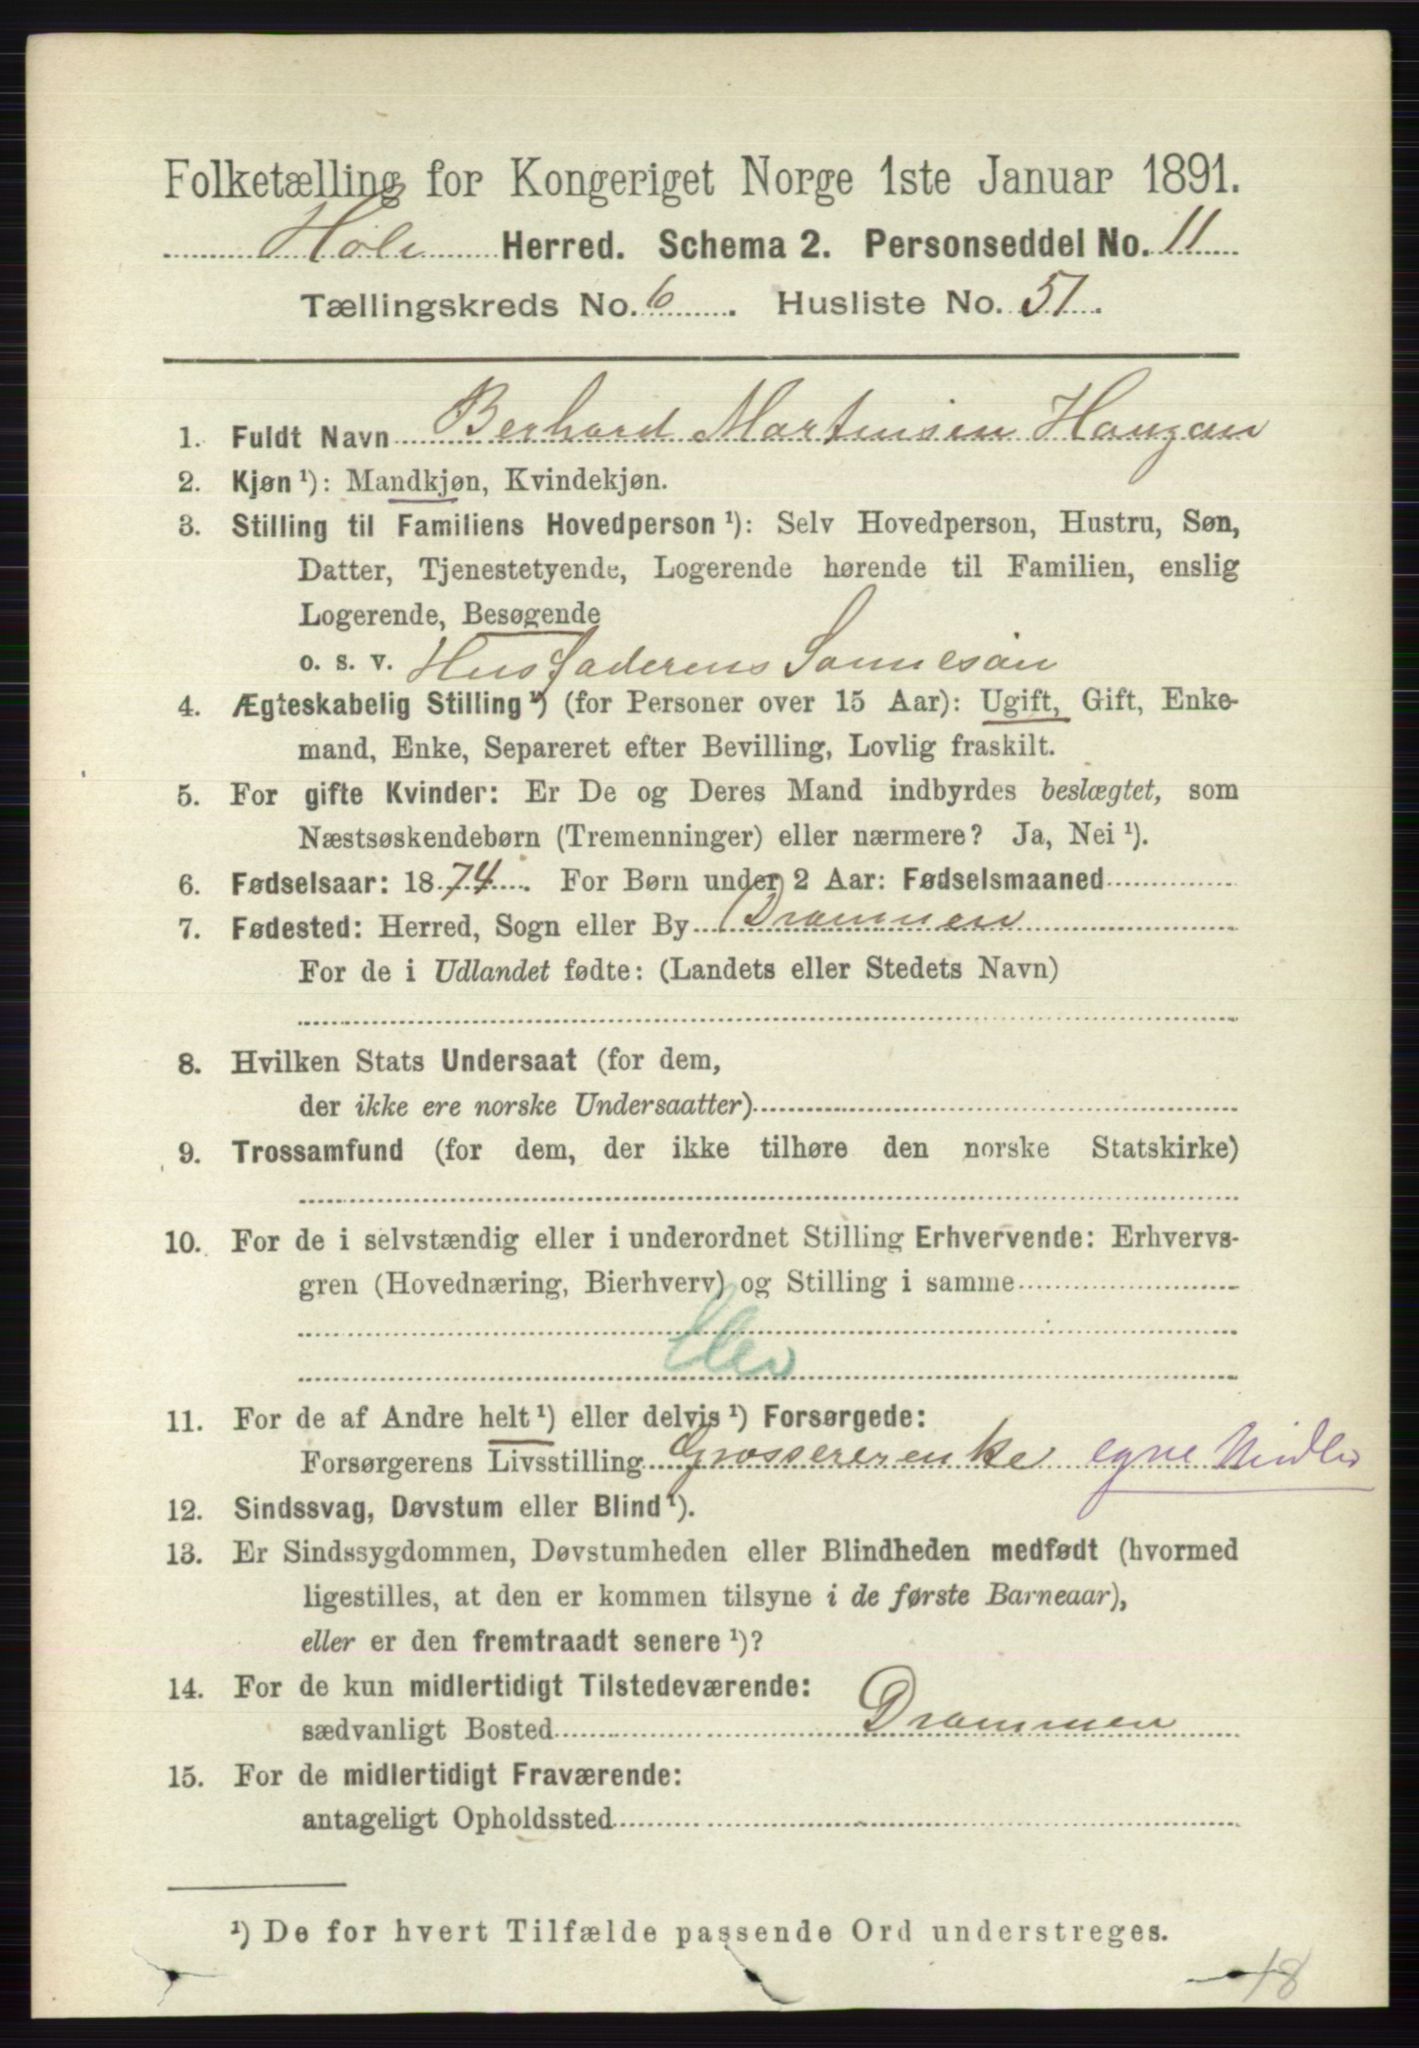 Folketælling for Kongeriget Norge 1ste Januar 1891.
Hole Herred. Schema 2. Personseddel No. 11
Tællingskreds No. 6. Husliste No. 51.
1. Fuldt Navn Berhard Martinsen Haugan
2. Kjøn ¹): Mandkjøn, Kvindekjøn.
3. Stilling til Familiens Hovedperson ¹): Selv Hovedperson, Hustru, Søn,
Datter, Tjenestetyende, Logerende hørende til Familien, enslig
Logerende, Besøgende
o. s. v. Husfaderens Sønnesøn
4. Ægteskabelig Stilling ¹) (for Personer over 15 Aar): Ugift, Gift, Enke-
mand, Enke, Separeret efter Bevilling, Lovlig fraskilt.
5. For gifte Kvinder: Er De og Deres Mand indbyrdes beslægtet, som
Næstsøskendebørn (Tremenninger) eller nærmere? Ja, Nei ¹).
6. Fødselsaar: 1874. For Børn under 2 Aar: Fødselsmaaned
7. Fødested: Herred, Sogn eller By Drammen
For de i Udlandet fødte: (Landets eller Stedets Navn)
8. Hvilken Stats Undersaat (for dem,
der ikke ere norske Undersaatter)
9. Trossamfund (for dem, der ikke tilhøre den norske Statskirke)
10. For de i selvstændig eller i underordnet Stilling Erhvervende: Erhvervs-
gren (Hovednæring, Bierhverv) og Stilling i samme
Elev
11. For de af Andre helt ¹) eller delvis ¹) Forsørgede:
Forsørgerens Livsstilling Grossererenke egne Midler
12. Sindssvag, Døvstum eller Blind ¹).
13. Er Sindssygdommen, Døvstumheden eller Blindheden medfødt (hvormed
ligestilles, at den er kommen tilsyne i de første Barneaar),
eller er den fremtraadt senere ¹)?
14. For de kun midlertidigt Tilstedeværende:
sædvanligt Bosted Drammen
15. For de midlertidigt Fraværende:
antageligt Opholdssted
¹) De for hvert Tilfælde passende Ord understreges.
18